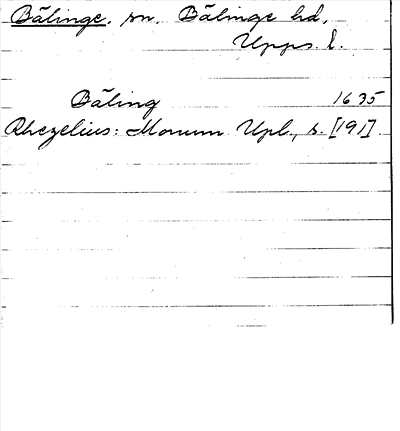 Bälinge, sn. Bälinge hd,
Upps. l.
Bäling 1635
Rhezelius: Monum. Upl., s. [191].